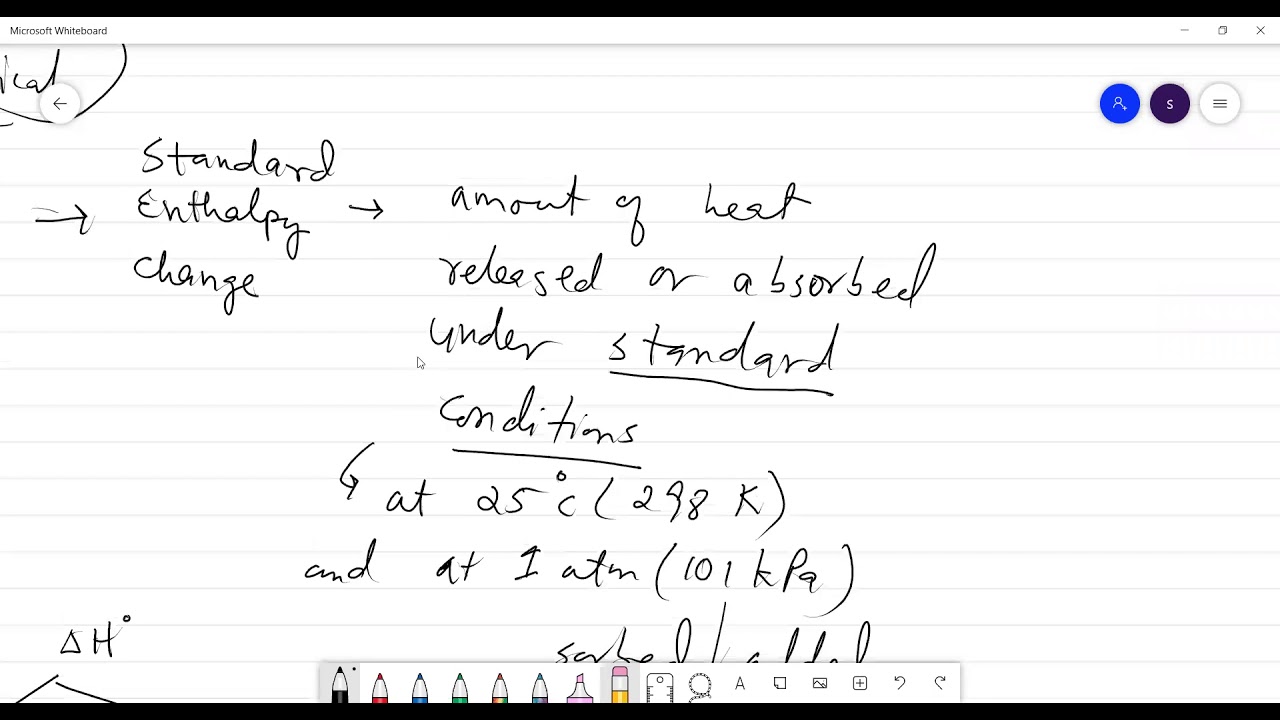 Microsoft Whiteboard
ical
S
Standard
Enthalpy → amount of heat
change
released or absorbed
under standard
conditions
at 25°C (298 K)
and at 1 atm (101 kPa)
ΔH°